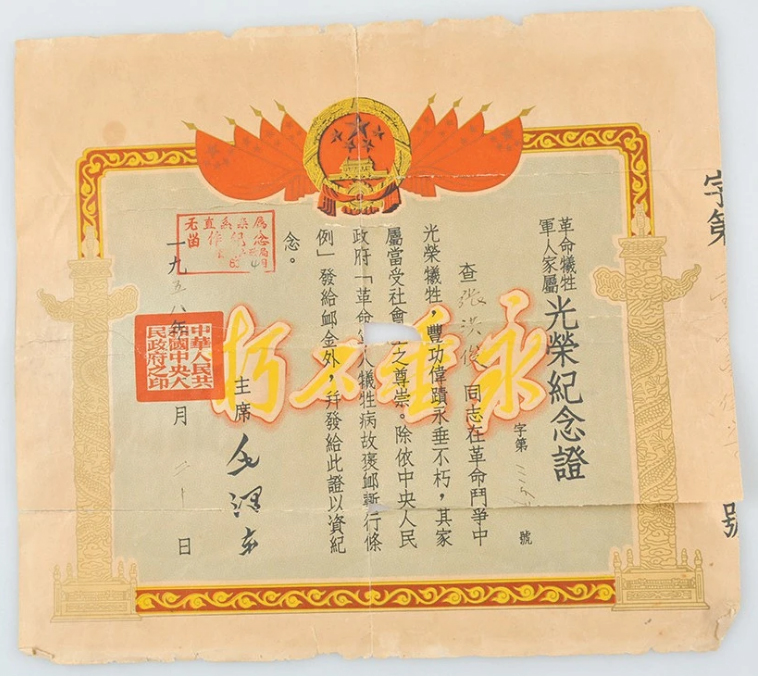 革命犧牲
軍人家屬
光榮紀念證
字第 號
查張洪俊同志在革命鬥爭中
光榮犧牲，豐功偉蹟永垂不朽，其家
屬當受社會之尊崇。除依中央人民
政府「革命人犧牲病故褒邺暫行條
例」發給邺金外，幷發給此證以資紀
念。
主席 毛澤東
一九五八年 月 日
中華人民共
和國中央人
民政府之印
永垂不朽
字第
號